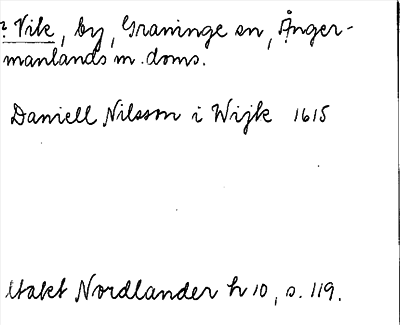 ? Vik, by, Graninge sn, Ånger-
manlands m. doms.
Daniell Nilsson i Wijk 1615
Utakt Nordlander h 10, s. 119.